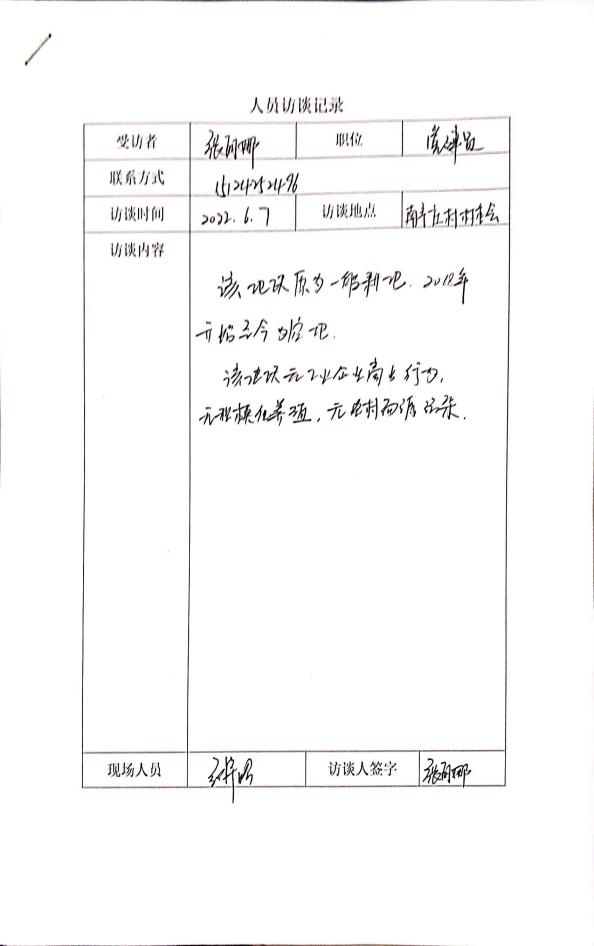 人员访谈记录
受访者 张 娜 职位
联系方式 15124252496
访谈时间 2022.6.7 访谈地点 南辛庄村村委会
访谈内容
该地块原为一般耕地. 2018年
开始至今为空地.
该地块无工业企业商业行为,
无规模化养殖, 无 污染.
现场人员 访谈人签字 张 娜